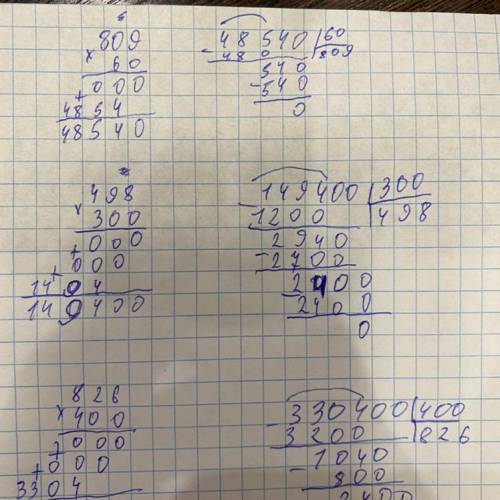 809
× 60
000
+
4854
48540
48540 | 60
- 480 | 809
540
- 540
0
498
× 300
000
+ 000
+
1494
149400
149400 | 300
- 1200 | 498
2940
- 2700
2400
- 2400
0
826
× 400
000
+ 000
+
3304
330400 | 400
- 3200 | 826
1040
- 800
2400